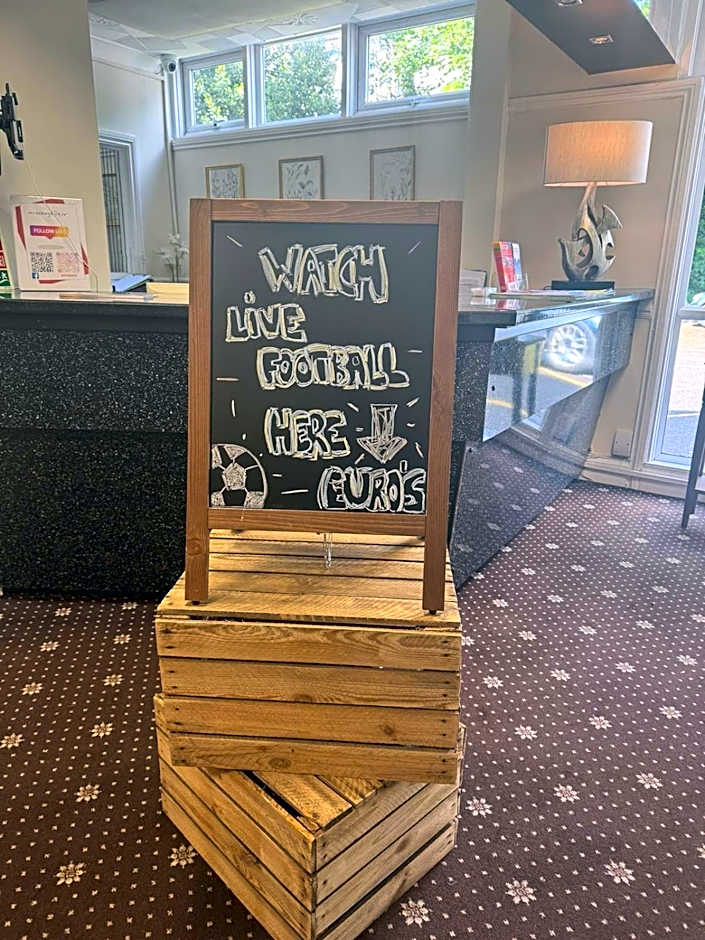 WATCH
LIVE
FOOTBALL
HERE
EURO'S
FOLLOW US